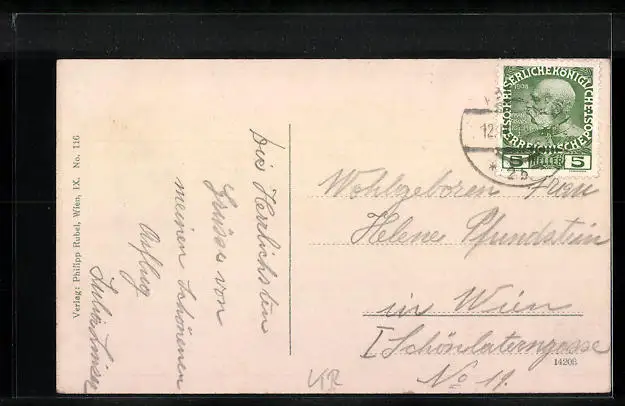 Verlag: Philipp Rubel, Wien, IX. No. 116
Die Herzlichsten
Grüsse von
meinen schönenen
Ausflug
KAISERLICHEKÖNIGLICHE
ÖSTERREICHISCHE
1908
5 HELLER 5
12.
* 2b
Wohlgeboren Frau
Helene Pfundstein
in Wien
I Schönlaterngasse
No 11.
14208